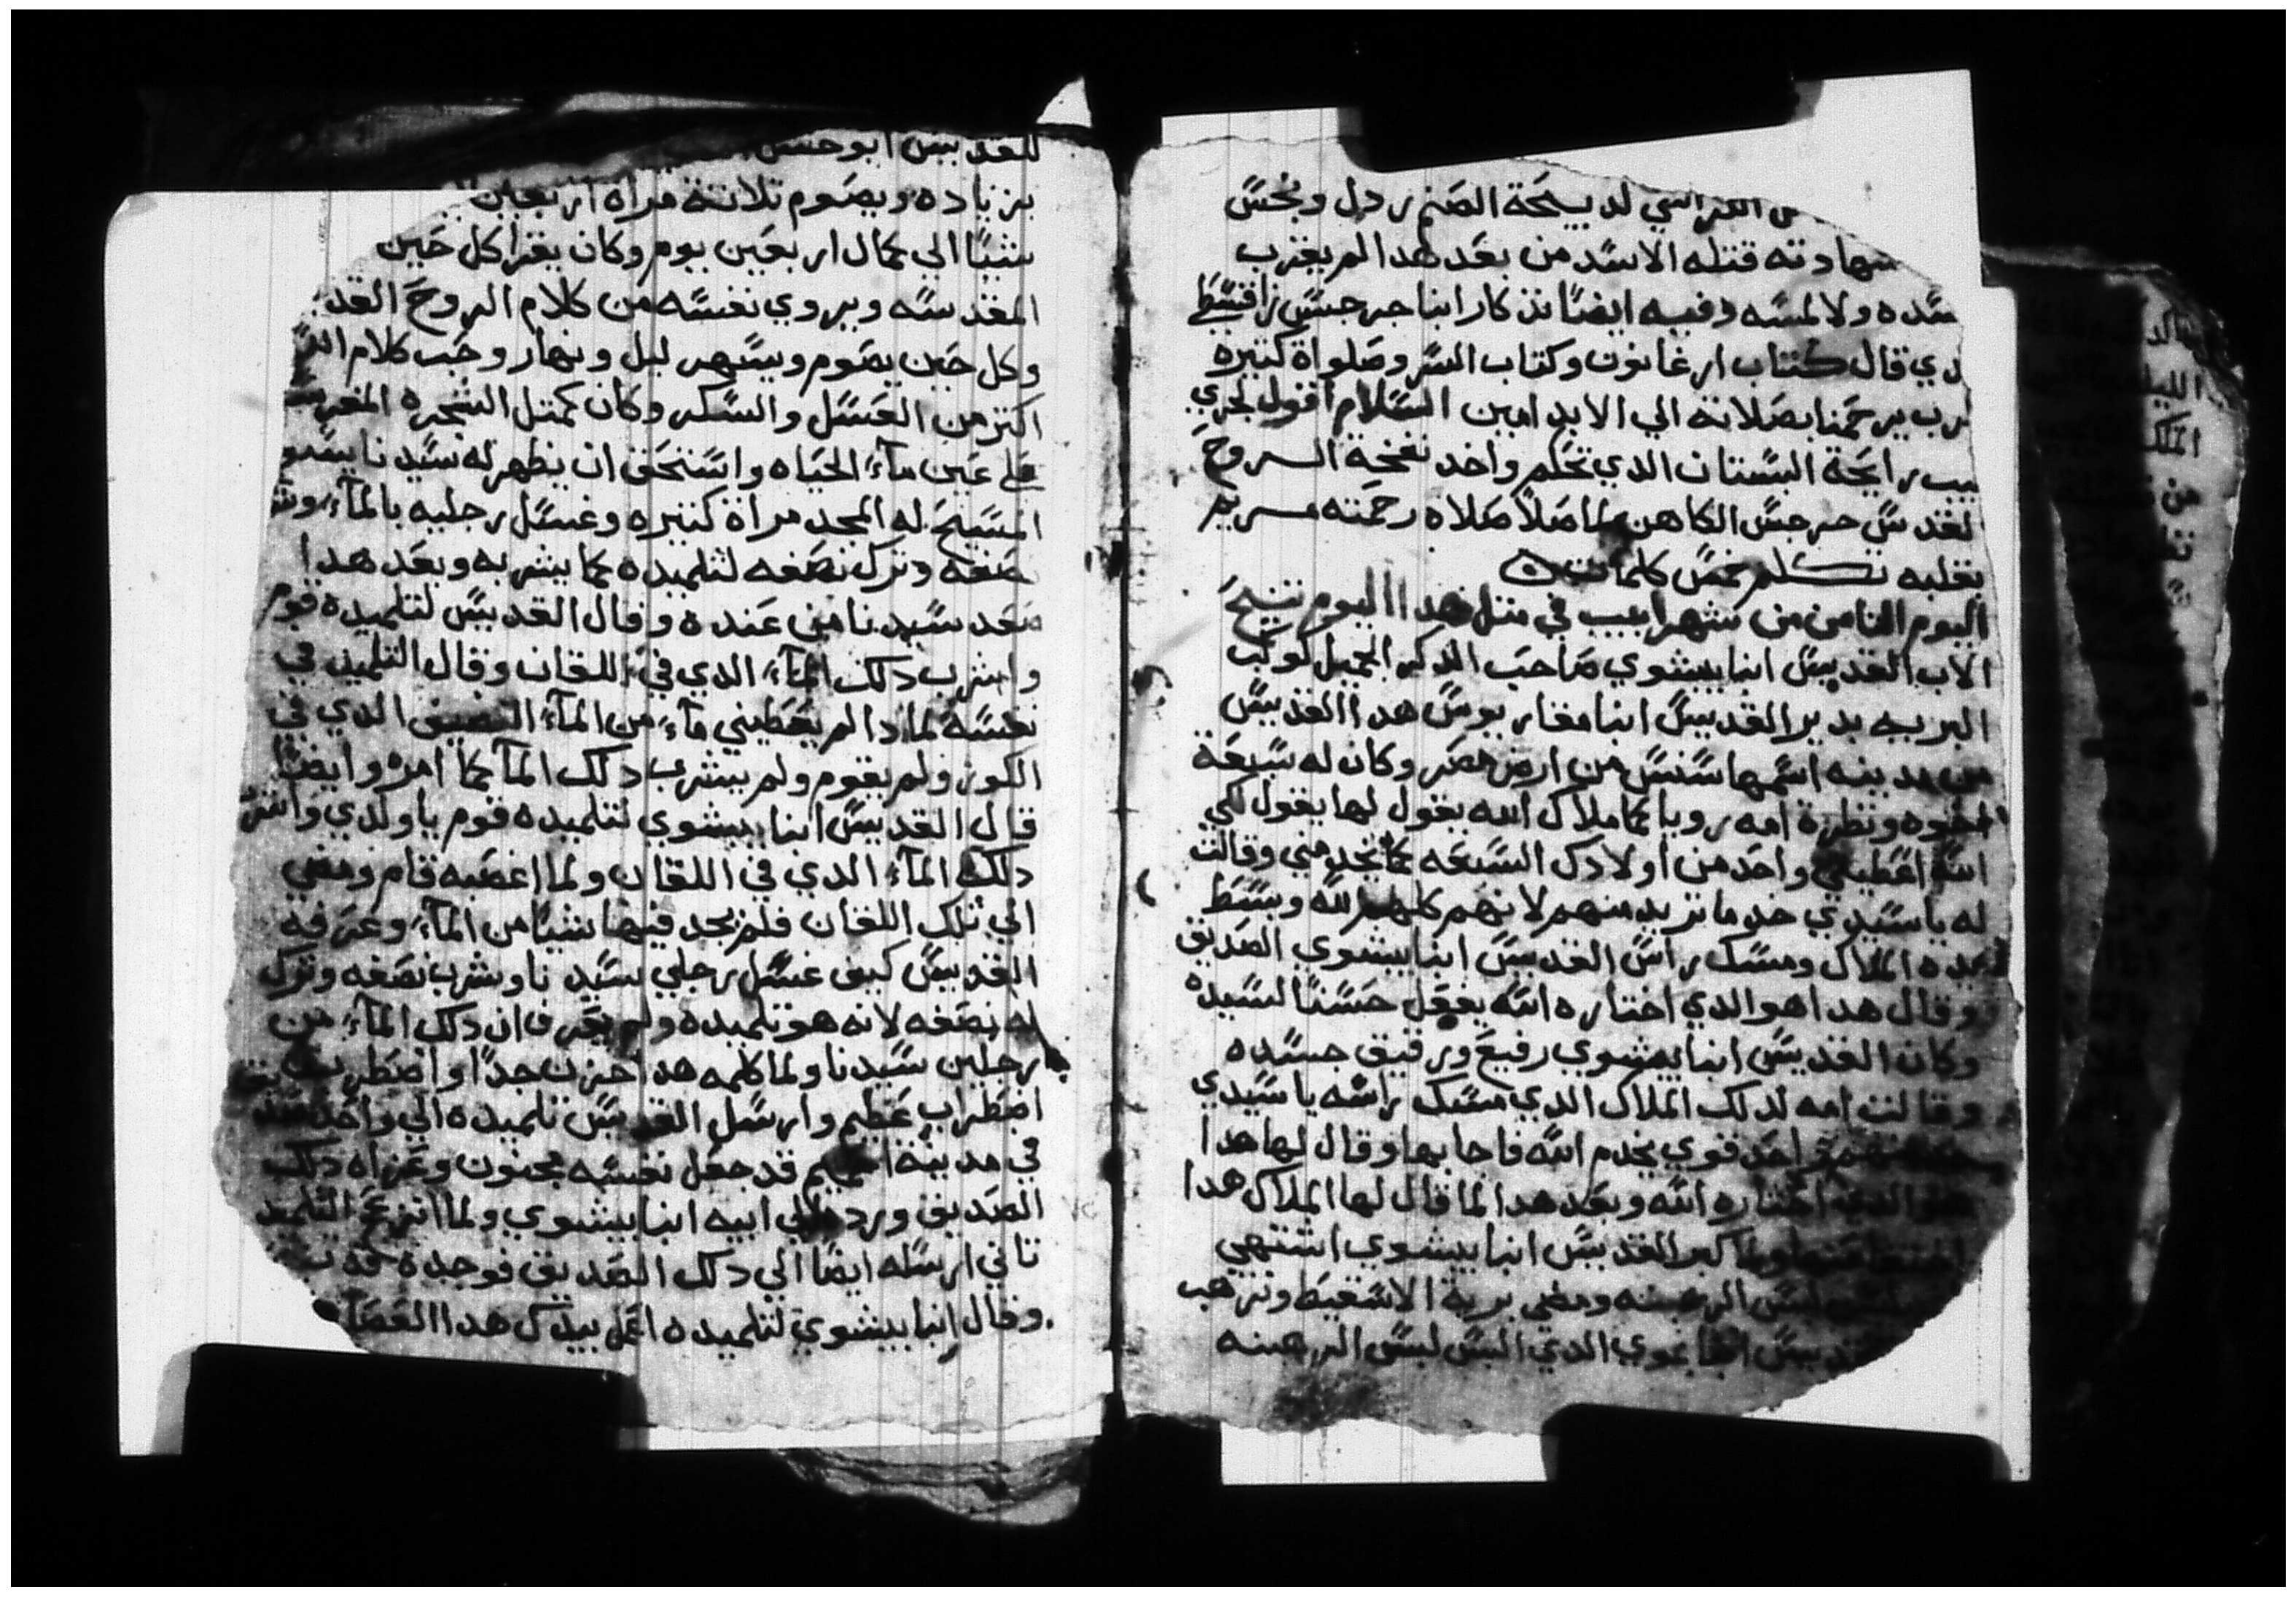 لديبيحة الصنم ردل ونجس
شهادته قتله الاسد من بعد هدا لم يقترب
جسده ولا لمسه وفيه ايضا تذكار ابنا جرجس
دي قال كتاب ارغانون وكتاب السر وصلواة كتيره
الرب يرحمنا بصلاته الي الابد امين السلام اقول
رايحة البستان الدي تحكم واخد نفخة الروح
لقديس جرجس الكاهن لما صلا صلاه رحمته
بقلبه تكلم خمس كلمات
اليوم التامن من شهر ابيب في متل هدا اليوم تنيح
الاب القديس ابنا بيشوي صاحب الدكر الجميل كوكب
البريه بدير القديس ابنا مقاريوس هدا القديس
من مدينه اسمها سنس من ارض مصر وكان له سبعة
اخوه ونظرة امه رويا كما ملاك الله يقول لها يقول لكي
الله اعطيني واحد من اولادك السبعه كما يخدمني وقالت
له يا سيدي خد ما تريد منهم لانهم كلهم لله وبسط
يده الملاك ومسك راس القديس ابنا بيشوي الصديق
وقال هدا هو الدي اختاره الله يفعل حسنا لسيده
وكان القديس ابنا بيشوي رفيع ورقيق جسده
وقالت امه لدلك الملاك الدي مسك راسه يا سيدي
واحد قوي يخدم الله فاجابها وقال لها هدا
هو الدي اختاره الله وبعد هدا لما قال لها الملاك هدا
اختفا عنها ولما كبر القديس ابنا بيشوي اشتهي
لبس الرهبنه ومضي برية الاسقيط وترهب
القديس ابنا بموي الدي البس لبس الرهبنه
للقديس ابو
بزياده ويصوم تلاتة مراه اربعين
شيا الي كمال اربعين يوم وكان يقرا كل حين
المقدسه ويروي نفسه من كلام الروح القد
وكل حين يصوم ويسهر ليل ونهار وحب كلام
اكتر من العسل والسكر وكان كمتل الشجره
علي عين مآء الحياه واستحق ان يظهر له سيدنا يسوع
المسيح له المجد مراة كتيره وغسل رجليه بالمآء
نصفه وترك نصفه لتلميده كما يشربه وبعد هدا
صعد سيدنا من عنده وقال القديس لتلميده قوم
واشرب دلك المآء الدي في اللقان وقال التلميد في
نفسه لمادا لم يعطيني مآء من المآء النضيف الدي في
الكوز ولم يقوم ولم يشرب دلك المآ كما امره وايضا
قال القديس ابنا بيشوي لتلميده قوم يا ولدي واشر
دلك المآء الدي في اللقان ولما اغصبه قام ومضي
الي تلك اللقان فلم يجد فيها شيا من المآء وعرفه
القديس كيف غسل رجلي سيدنا وشرب نصفه وترك
له نصفه لانه هو تلميده ولم يعرف ان دلك المآء من
رجلين سيدنا ولما كلمه هدا حزن جدا واضطرب
اضطراب عظيم وارسل القديس تلميده الي واحد
في مدينة اخميم قد جعل نفسه مجنون وعزاه دلك
الصديق ورده الي ابيه ابنا بيشوي ولما انزعج التلميد
تاني ارسله ايضا الي دلك الصديق فوجده
وقال ابنا بيشوي لتلميده اعمل بيدك هدا العصا